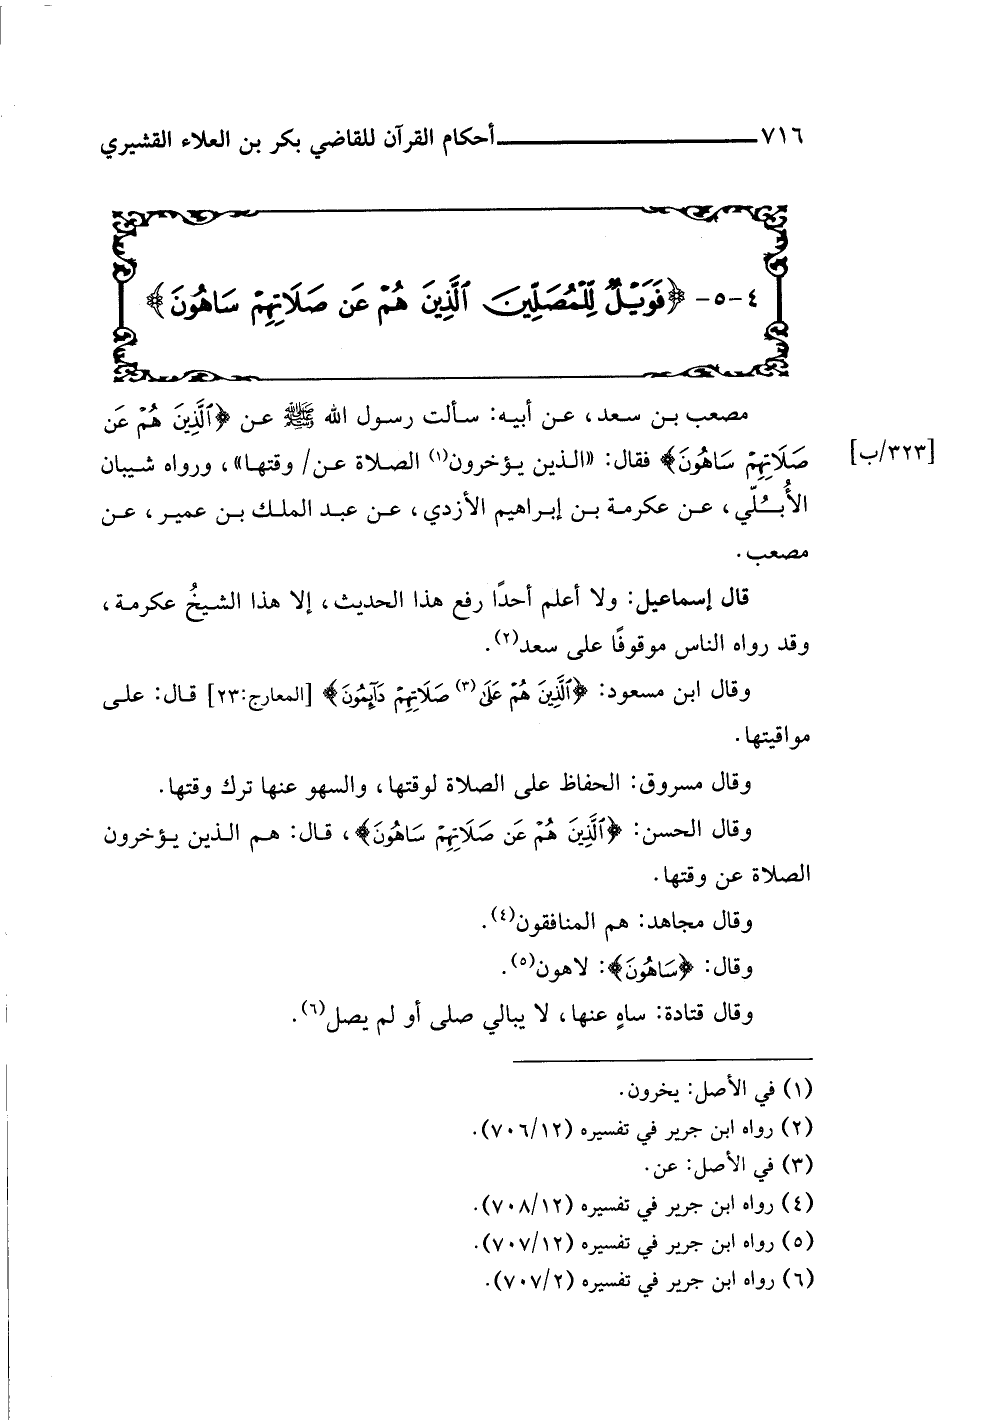 ٧١٦ أحكام القرآن للقاضي بكر بن العلاء القشيري
٤-٥- ﴿فَوَيْلٌ لِّلْمُصَلِّينَ ٱلَّذِينَ هُمْ عَن صَلَاتِهِمْ سَاهُونَ﴾
مصعب بن سعد، عن أبيه: سألت رسول الله ﷺ عن ﴿ٱلَّذِينَ هُمْ عَن
صَلَاتِهِمْ سَاهُونَ﴾ فقال: «الذين يؤخرون(١) الصلاة عن/ وقتها»، ورواه شيبان
[٣٢٣/ب]
الأُبُلّي، عن عكرمة بن إبراهيم الأزدي، عن عبد الملك بن عمير، عن
مصعب.
قال إسماعيل: ولا أعلم أحدًا رفع هذا الحديث، إلا هذا الشيخُ عكرمة،
وقد رواه الناس موقوفًا على سعد(٢).
وقال ابن مسعود: ﴿ٱلَّذِينَ هُمْ عَلَىٰ(٣) صَلَاتِهِمْ دَآئِمُونَ﴾ [المعارج:٢٣] قال: على
مواقيتها.
وقال مسروق: الحفاظ على الصلاة لوقتها، والسهو عنها ترك وقتها.
وقال الحسن: ﴿ٱلَّذِينَ هُمْ عَن صَلَاتِهِمْ سَاهُونَ﴾، قال: هم الذين يؤخرون
الصلاة عن وقتها.
وقال مجاهد: هم المنافقون(٤).
وقال: ﴿سَاهُونَ﴾: لاهون(٥).
وقال قتادة: ساهٍ عنها، لا يبالي صلى أو لم يصل(٦).
(١) في الأصل: يخرون.
(٢) رواه ابن جرير في تفسيره (٧٠٦/١٢).
(٣) في الأصل: عن.
(٤) رواه ابن جرير في تفسيره (٧٠٨/١٢).
(٥) رواه ابن جرير في تفسيره (٧٠٧/١٢).
(٦) رواه ابن جرير في تفسيره (٧٠٧/٢).